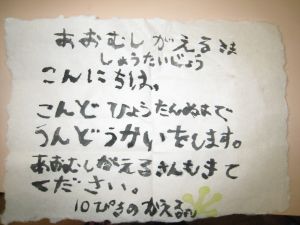 あおむしがえるさま
しょうたいじょう
こんにちは。
こんど ひょうたんぬまで
うんどうかいをします。
あおむしがえるさんもきて
ください。
10ぴきのかえるより